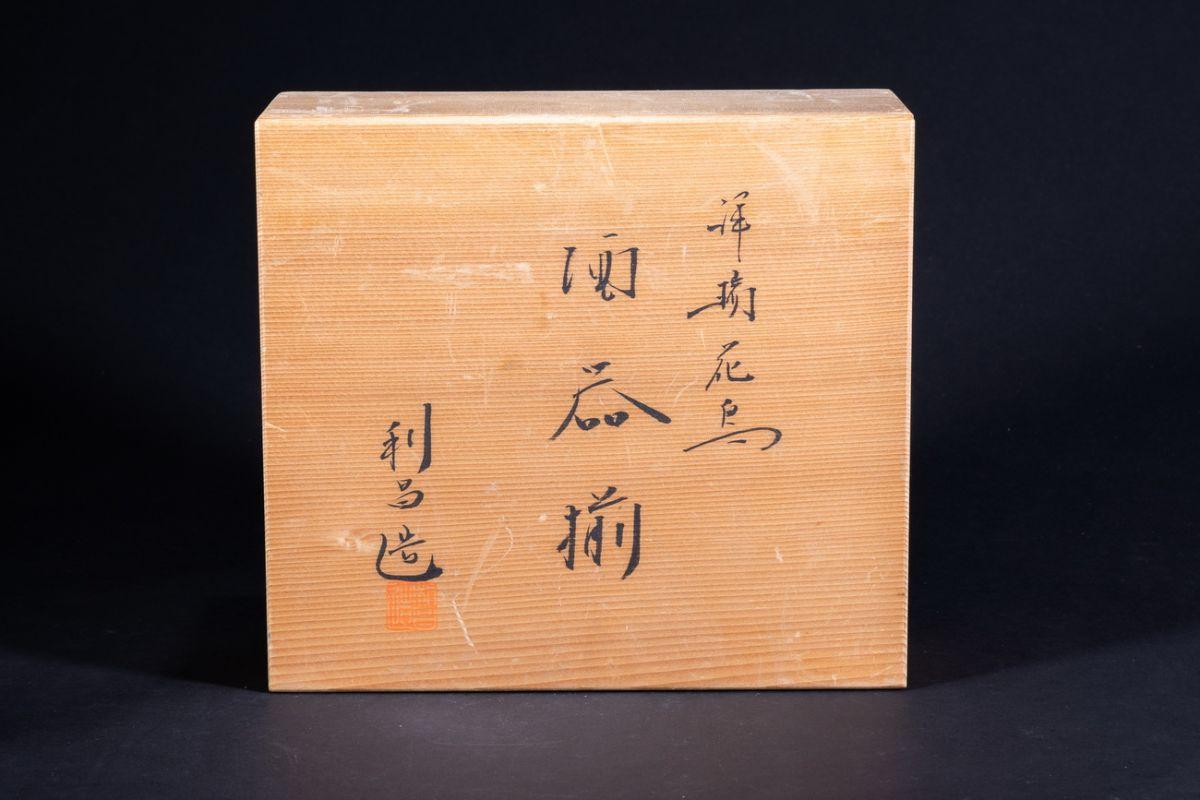 祥瑞花鳥
酒器揃
利昌造